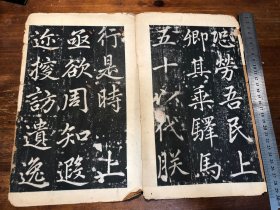 慰勞吾民上
卿其乘驛馬
五十以代朕
行是時 上
亟欲周知遐
近搜訪遺逸